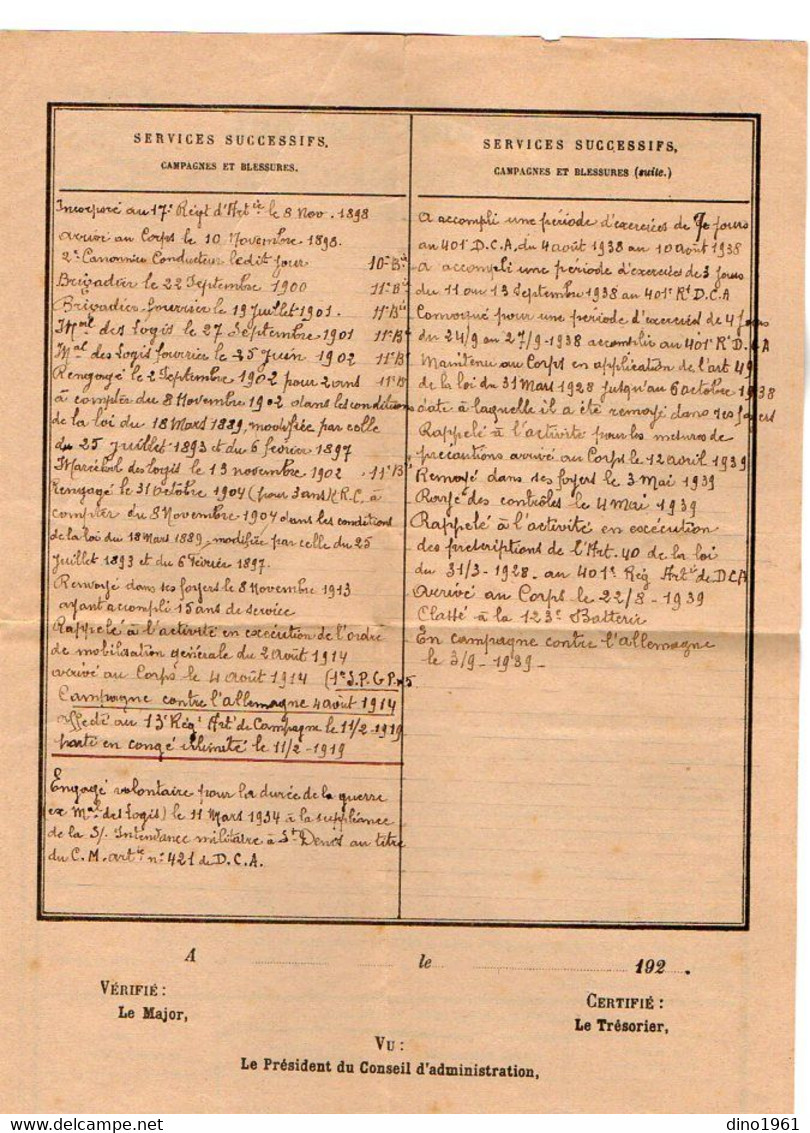 SERVICES SUCCESSIFS,
CAMPAGNES ET BLESSURES.
Incorporé au 17e Régt d'Artie le 8 Nov. 1898
arrivé au Corps le 10 Novembre 1898.
2e Canonnier Conducteur ledit jour 10e Bie
Brigadier le 22 Septembre 1900 11e Bie
Brigadier-fourrier le 19 Juillet 1901. 11e Bie
Mal des Logis le 27 Septembre 1901 11e Bie
Mal des Logis fourrier le 25 Juin 1902 11e Bie
Rengagé le 2 Septembre 1902 pour 2 ans 11e Bie
à compter du 8 Novembre 1902 dans les conditions
de la loi du 18 Mars 1889, modifiée par celle
du 25 Juillet 1893 et du 6 février 1897
Maréchal des logis le 13 novembre 1902. 11e Bie
Rengagé le 31 Octobre 1904 (pour 3 ans) C.R.C. à
compter du 8 Novembre 1904 dans les conditions
de la loi du 18 Mars 1889, modifiée par celle du 25
Juillet 1893 et du 6 Février 1897.
Renvoyé dans ses foyers le 8 Novembre 1913
ayant accompli 15 ans de service
Rappelé à l'activité en exécution de l'ordre
de mobilisation générale du 2 Août 1914
arrivé au Corps le 4 août 1914 (1e S.P.G.P. n°5
Campagne contre l'allemagne 4 août 1914
affecté au 13e Régt Art. de Campagne le 11/2-1919
parti en congé illimité le 11/2-1919
Engagé volontaire pour la durée de la guerre
ex Mal des Logis) le 11 Mars 1934 à la suppléance
de la S/. Intendance militaire à St Denis au titre
du C.M. artie n° 421 de D.C.A.
SERVICES SUCCESSIFS,
CAMPAGNES ET BLESSURES (suite.)
A accompli une période d'exercices de 7 jours
au 401e D.C.A. du 4 août 1938 au 10 août 1938
a accompli une période d'exercices de 3 jours
du 11 au 13 Septembre 1938 au 401e Rt D.C.A
Convoqué pour une période d'exercices de 4 jours
du 24/9 au 27/9-1938 accomplie au 401e Rt D.C.A
Maintenu au Corps en application de l'art 49
de la loi du 31 Mars 1928 jusqu'au 6 octobre 1938
date à laquelle il a été renvoyé dans ses foyers
Rappelé à l'activité pour les mesures de
precautions arrivé au Corps le 12 avril 1939
Renvoyé dans ses foyers le 3 Mai 1939
Rayé des contrôles le 4 Mai 1939
Rappelé à l'activité en exécution
des prescriptions de l'Art. 40 de la loi
du 31/3-1928. au 401e Rég Artie de DCA
Arrivé au Corps le 22/8-1939
Classé à la 123e Batterie
En campagne contre l'allemagne
le 3/9-1939-
A le 192 .
VÉRIFIÉ :
Le Major,
CERTIFIÉ :
Le Trésorier,
VU :
Le Président du Conseil d'administration,
dino1961